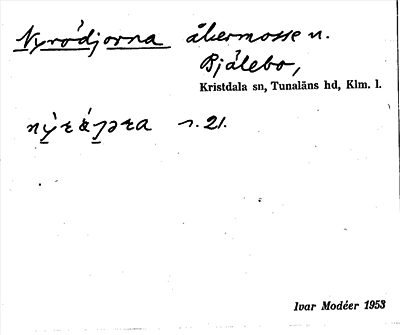 Nyródjorna åkermosse n.
Bjälebo,
Kristdala sn, Tunaläns hd, Klm. l.
s. 21.
Ivar Modéer 1953